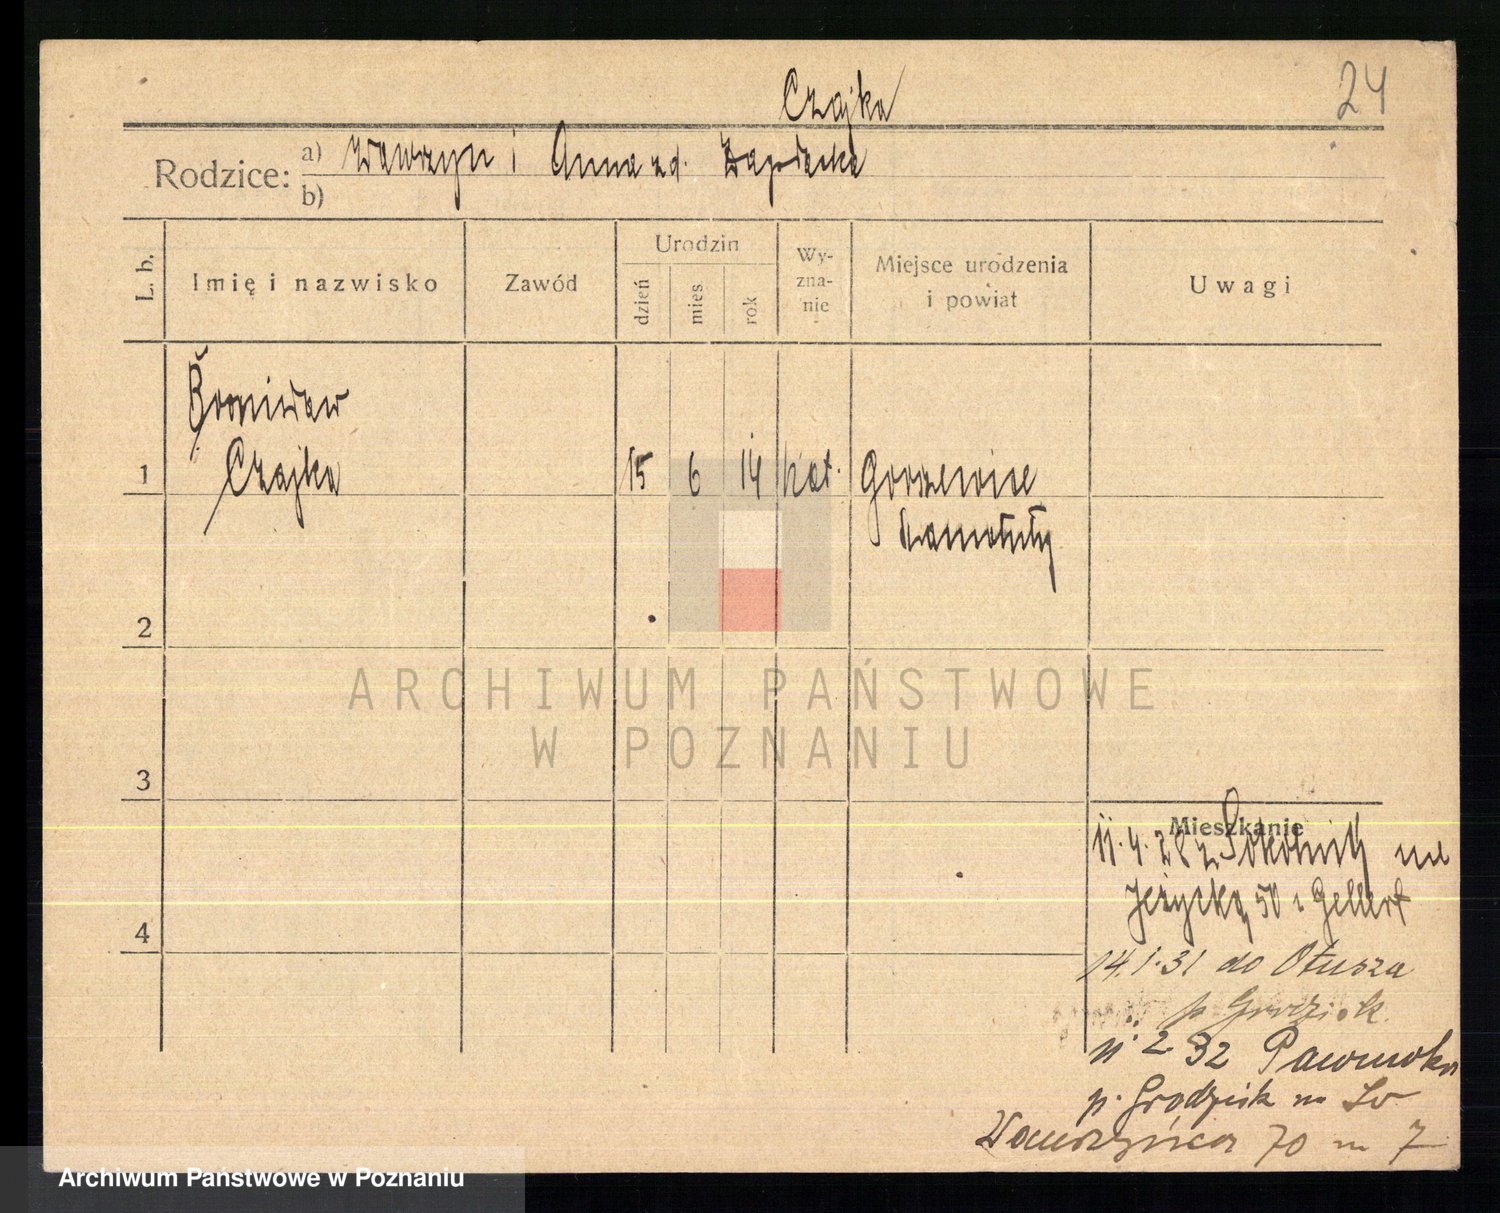 Czajka
24
Rodzice: a) Wawrzyn i Anna zd.
b)
L. b.
Imię i nazwisko
Zawód
Urodzin
dzień
mies.
rok
Wy-
zna-
nie
Miejsce urodzenia
i powiat
Uwagi
Bronisław
1 Czajka 15 6 14 kat. Gorszewice
Szamotuły
2
ARCHIWUM PAŃSTWOWE
W POZNANIU
3
Mieszkanie
11.4.28 z Sokolnik na
Jeżycką 50 Gellert
4
14.1.31 do Otusza
p. Grodzisk
11 2 32
p. Grodzisk na Św
Wawrzyńca 70 m 7
Archiwum Państwowe w Poznaniu